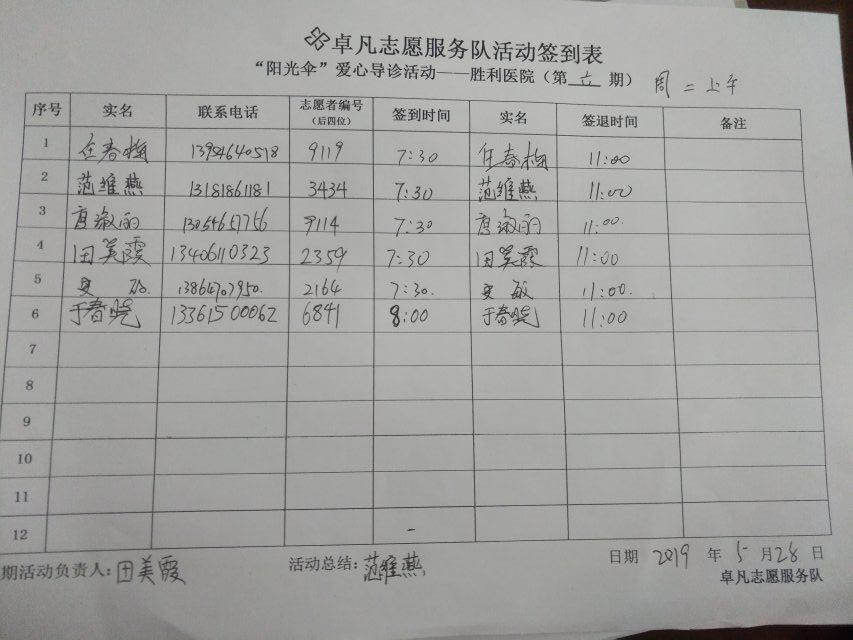 卓凡志愿服务队活动签到表
“阳光伞”爱心导诊活动——胜利医院（第 期） 周二上午
序号 实名 联系电话 志愿者编号（后四位） 签到时间 实名 签退时间 备注
1 任春梅 13954640518 9119 7:30 任春梅 11:00
2 范维燕 13181861181 3434 7:30 范维燕 11:00
3 淑丽 13054657756 9114 7:30 淑丽 11:00
4 田美霞 13406110323 2359 7:30 田美霞 11:00
5 敏 13864707950 2164 7:30 敏 11:00
6 于春晓 13361500062 6841 8:00 于春晓 11:00
7
8
9
10
11
12
期活动负责人：田美霞 活动总结：范维燕 日期 2019 年 5 月 28 日
卓凡志愿服务队